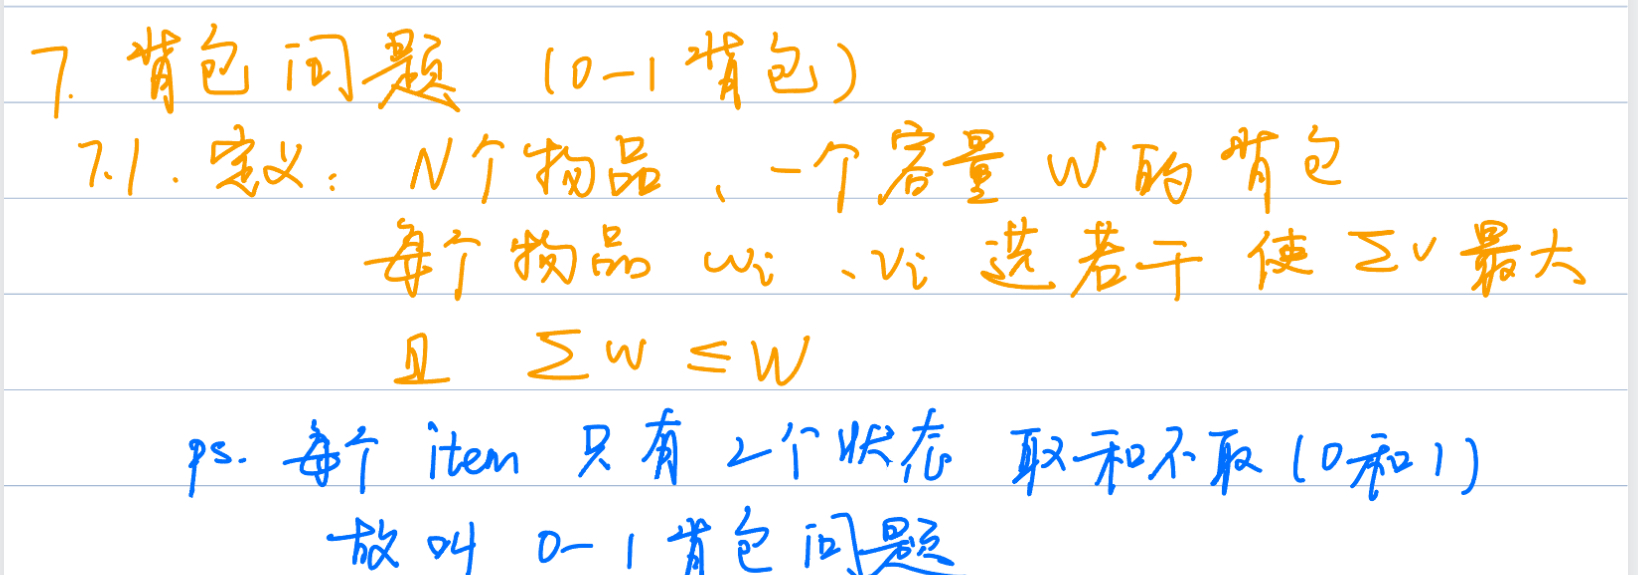 7. 背包问题 (0-1背包)
7.1. 定义: N个物品、一个容量W的背包
每个物品 wi、vi 选若干 使 Σv 最大
且 Σw ≤ W
ps. 每个 item 只有2个状态 取和不取(0和1)
故叫 0-1背包问题